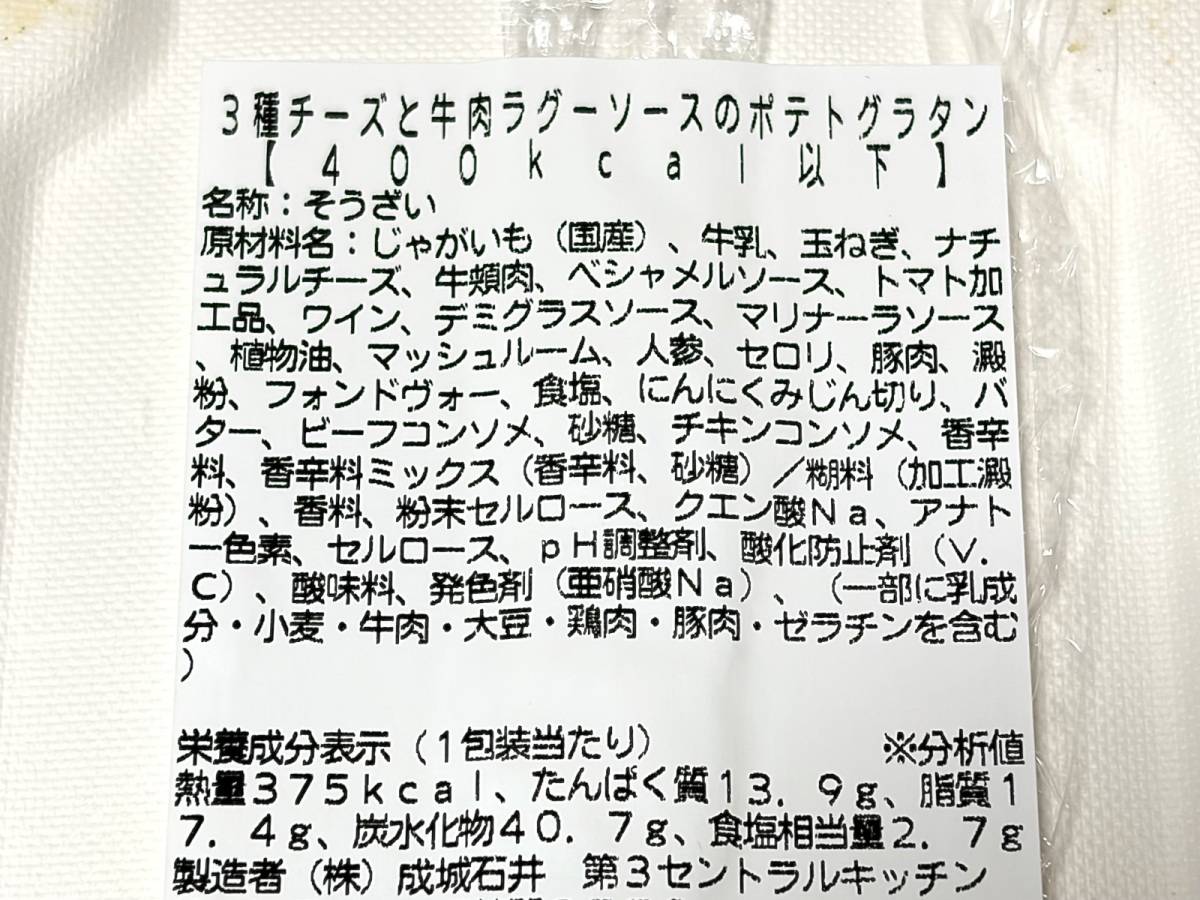 3種チーズと牛肉ラグーソースのポテトグラタン
【400kcal以下】
名称：そうざい
原材料名：じゃがいも（国産）、牛乳、玉ねぎ、ナチ
ュラルチーズ、牛頬肉、ベシャメルソース、トマト加
工品、ワイン、デミグラスソース、マリナーラソース
、植物油、マッシュルーム、人参、セロリ、豚肉、澱
粉、フォンドヴォー、食塩、にんにくみじん切り、バ
ター、ビーフコンソメ、砂糖、チキンコンソメ、香辛
料、香辛料ミックス（香辛料、砂糖）／糊料（加工澱
粉）、香料、粉末セルロース、クエン酸Na、アナト
ー色素、セルロース、pH調整剤、酸化防止剤（V.
C）、酸味料、発色剤（亜硝酸Na）、（一部に乳成
分・小麦・牛肉・大豆・鶏肉・豚肉・ゼラチンを含む
）
栄養成分表示（1包装当たり） ※分析値
熱量375kcal、たんぱく質13.9g、脂質1
7.4g、炭水化物40.7g、食塩相当量2.7g
製造者（株）成城石井 第3セントラルキッチン